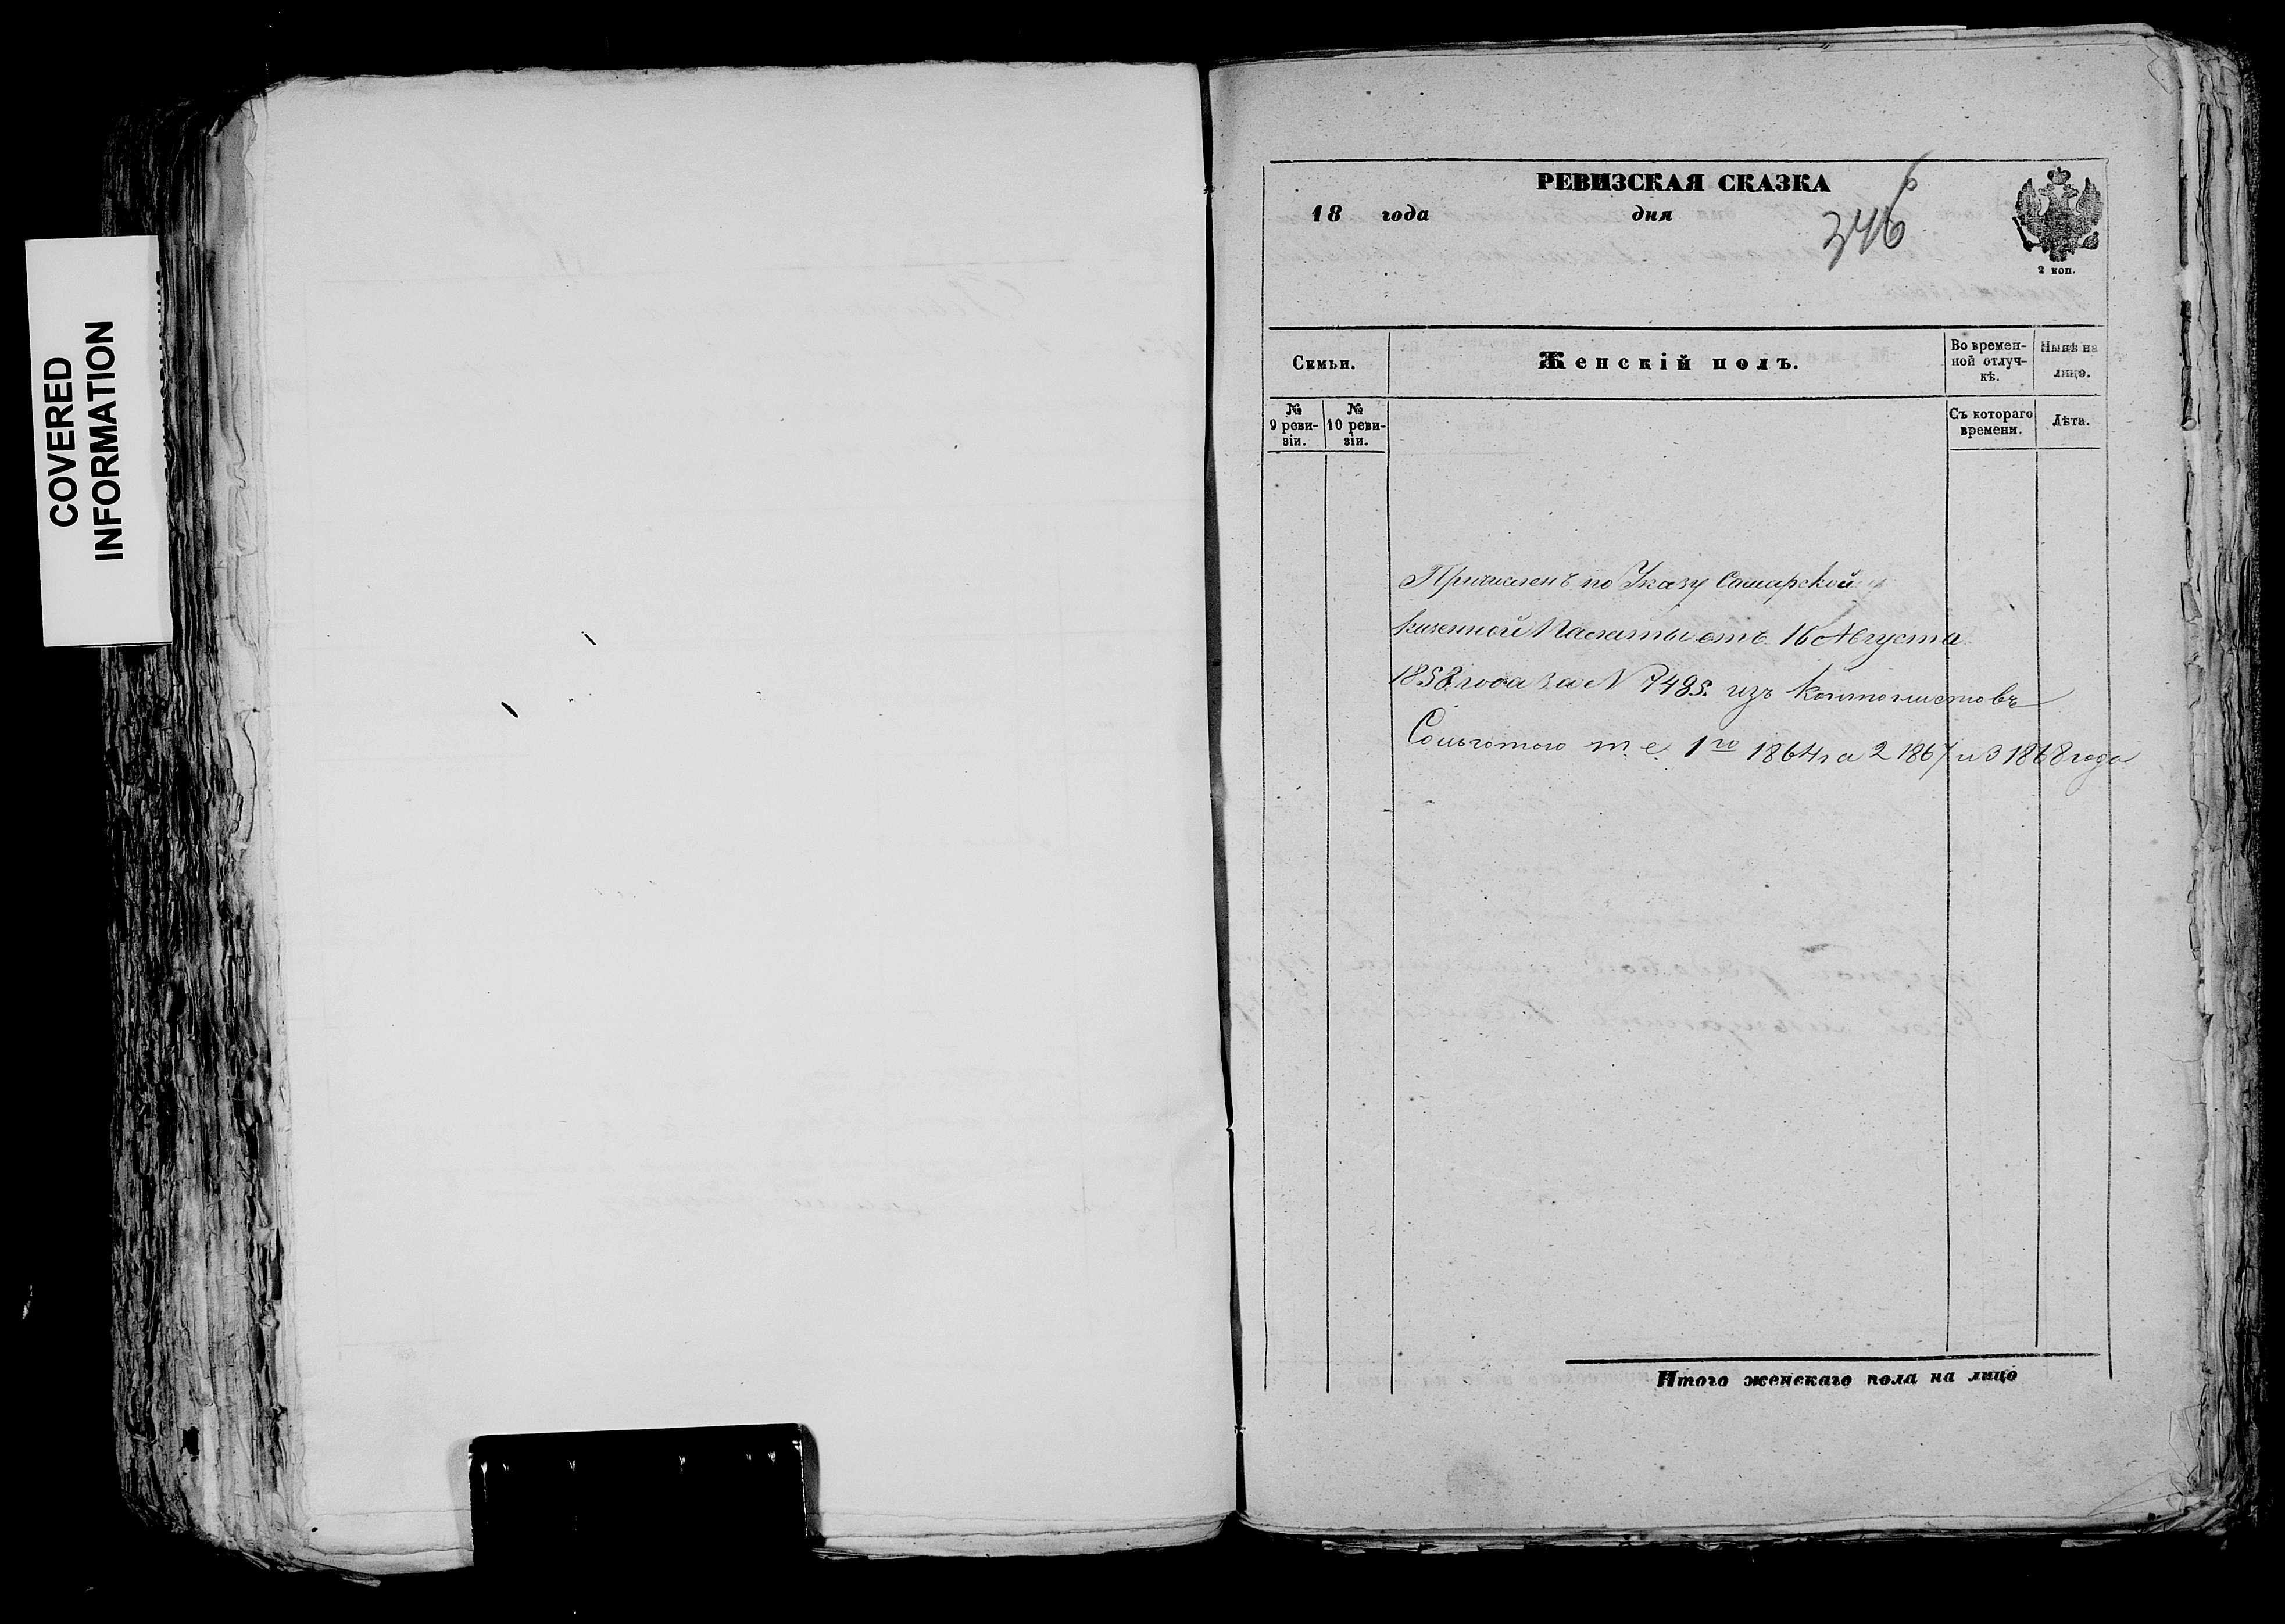 COVERED
INFORMATION
РЕВИЗСКАЯ СКАЗКА
18 года дня
346
2 коп.
Семьи.
Женскій полъ.
Во времен-
ной отлуч-
кѣ.
Нынѣ на
лицо.
№
9 реви-
зіи.
№
10 реви-
зіи.
Съ котораго
времени.
Лѣта.
Причисленъ по Указу Самарской
казенной Палаты отъ 16 Августа
1858 года за N 7495. изъ кантонистовъ
Сольготою т. е. 1го 1864 га 2 1867 и 3 1868 года
Итого женскаго пола на лицо